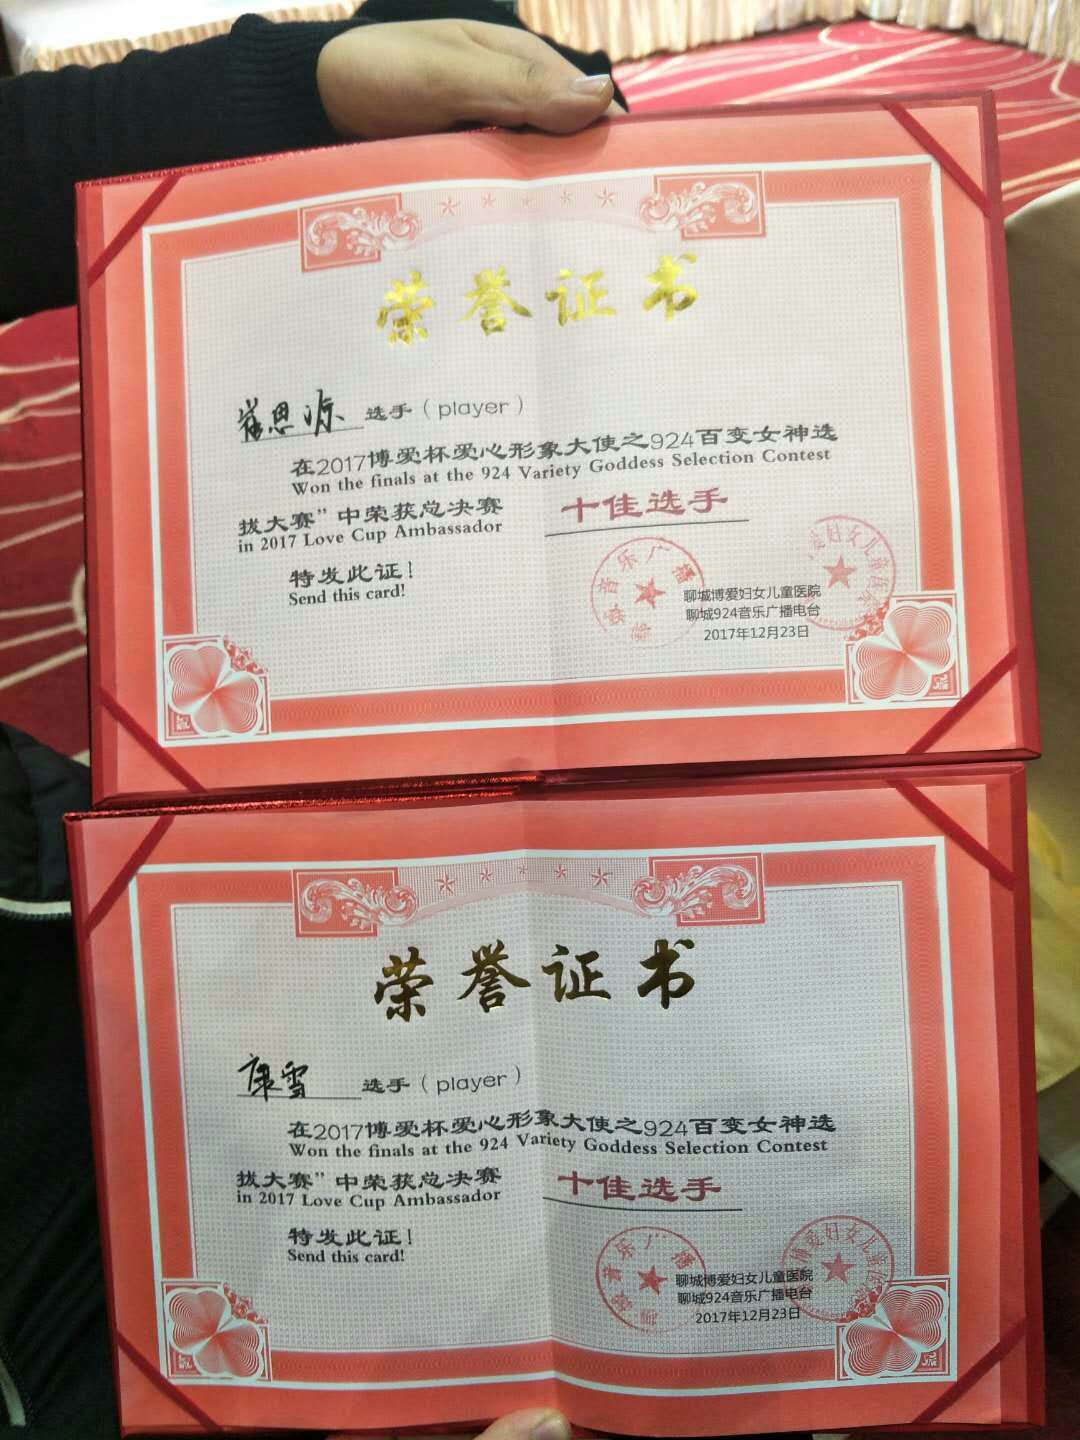 荣誉证书
崔思源 选手（player）
在2017博爱杯爱心形象大使之924百变女神选
Won the finals at the 924 Variety Goddess Selection Contest
拔大赛”中荣获总决赛 十佳选手
in 2017 Love Cup Ambassador
特发此证！
Send this card!
聊城博爱妇女儿童医院
聊城924音乐广播电台
2017年12月23日
荣誉证书
康雪 选手（player）
在2017博爱杯爱心形象大使之924百变女神选
Won the finals at the 924 Variety Goddess Selection Contest
拔大赛”中荣获总决赛 十佳选手
in 2017 Love Cup Ambassador
特发此证！
Send this card!
聊城博爱妇女儿童医院
聊城924音乐广播电台
2017年12月23日